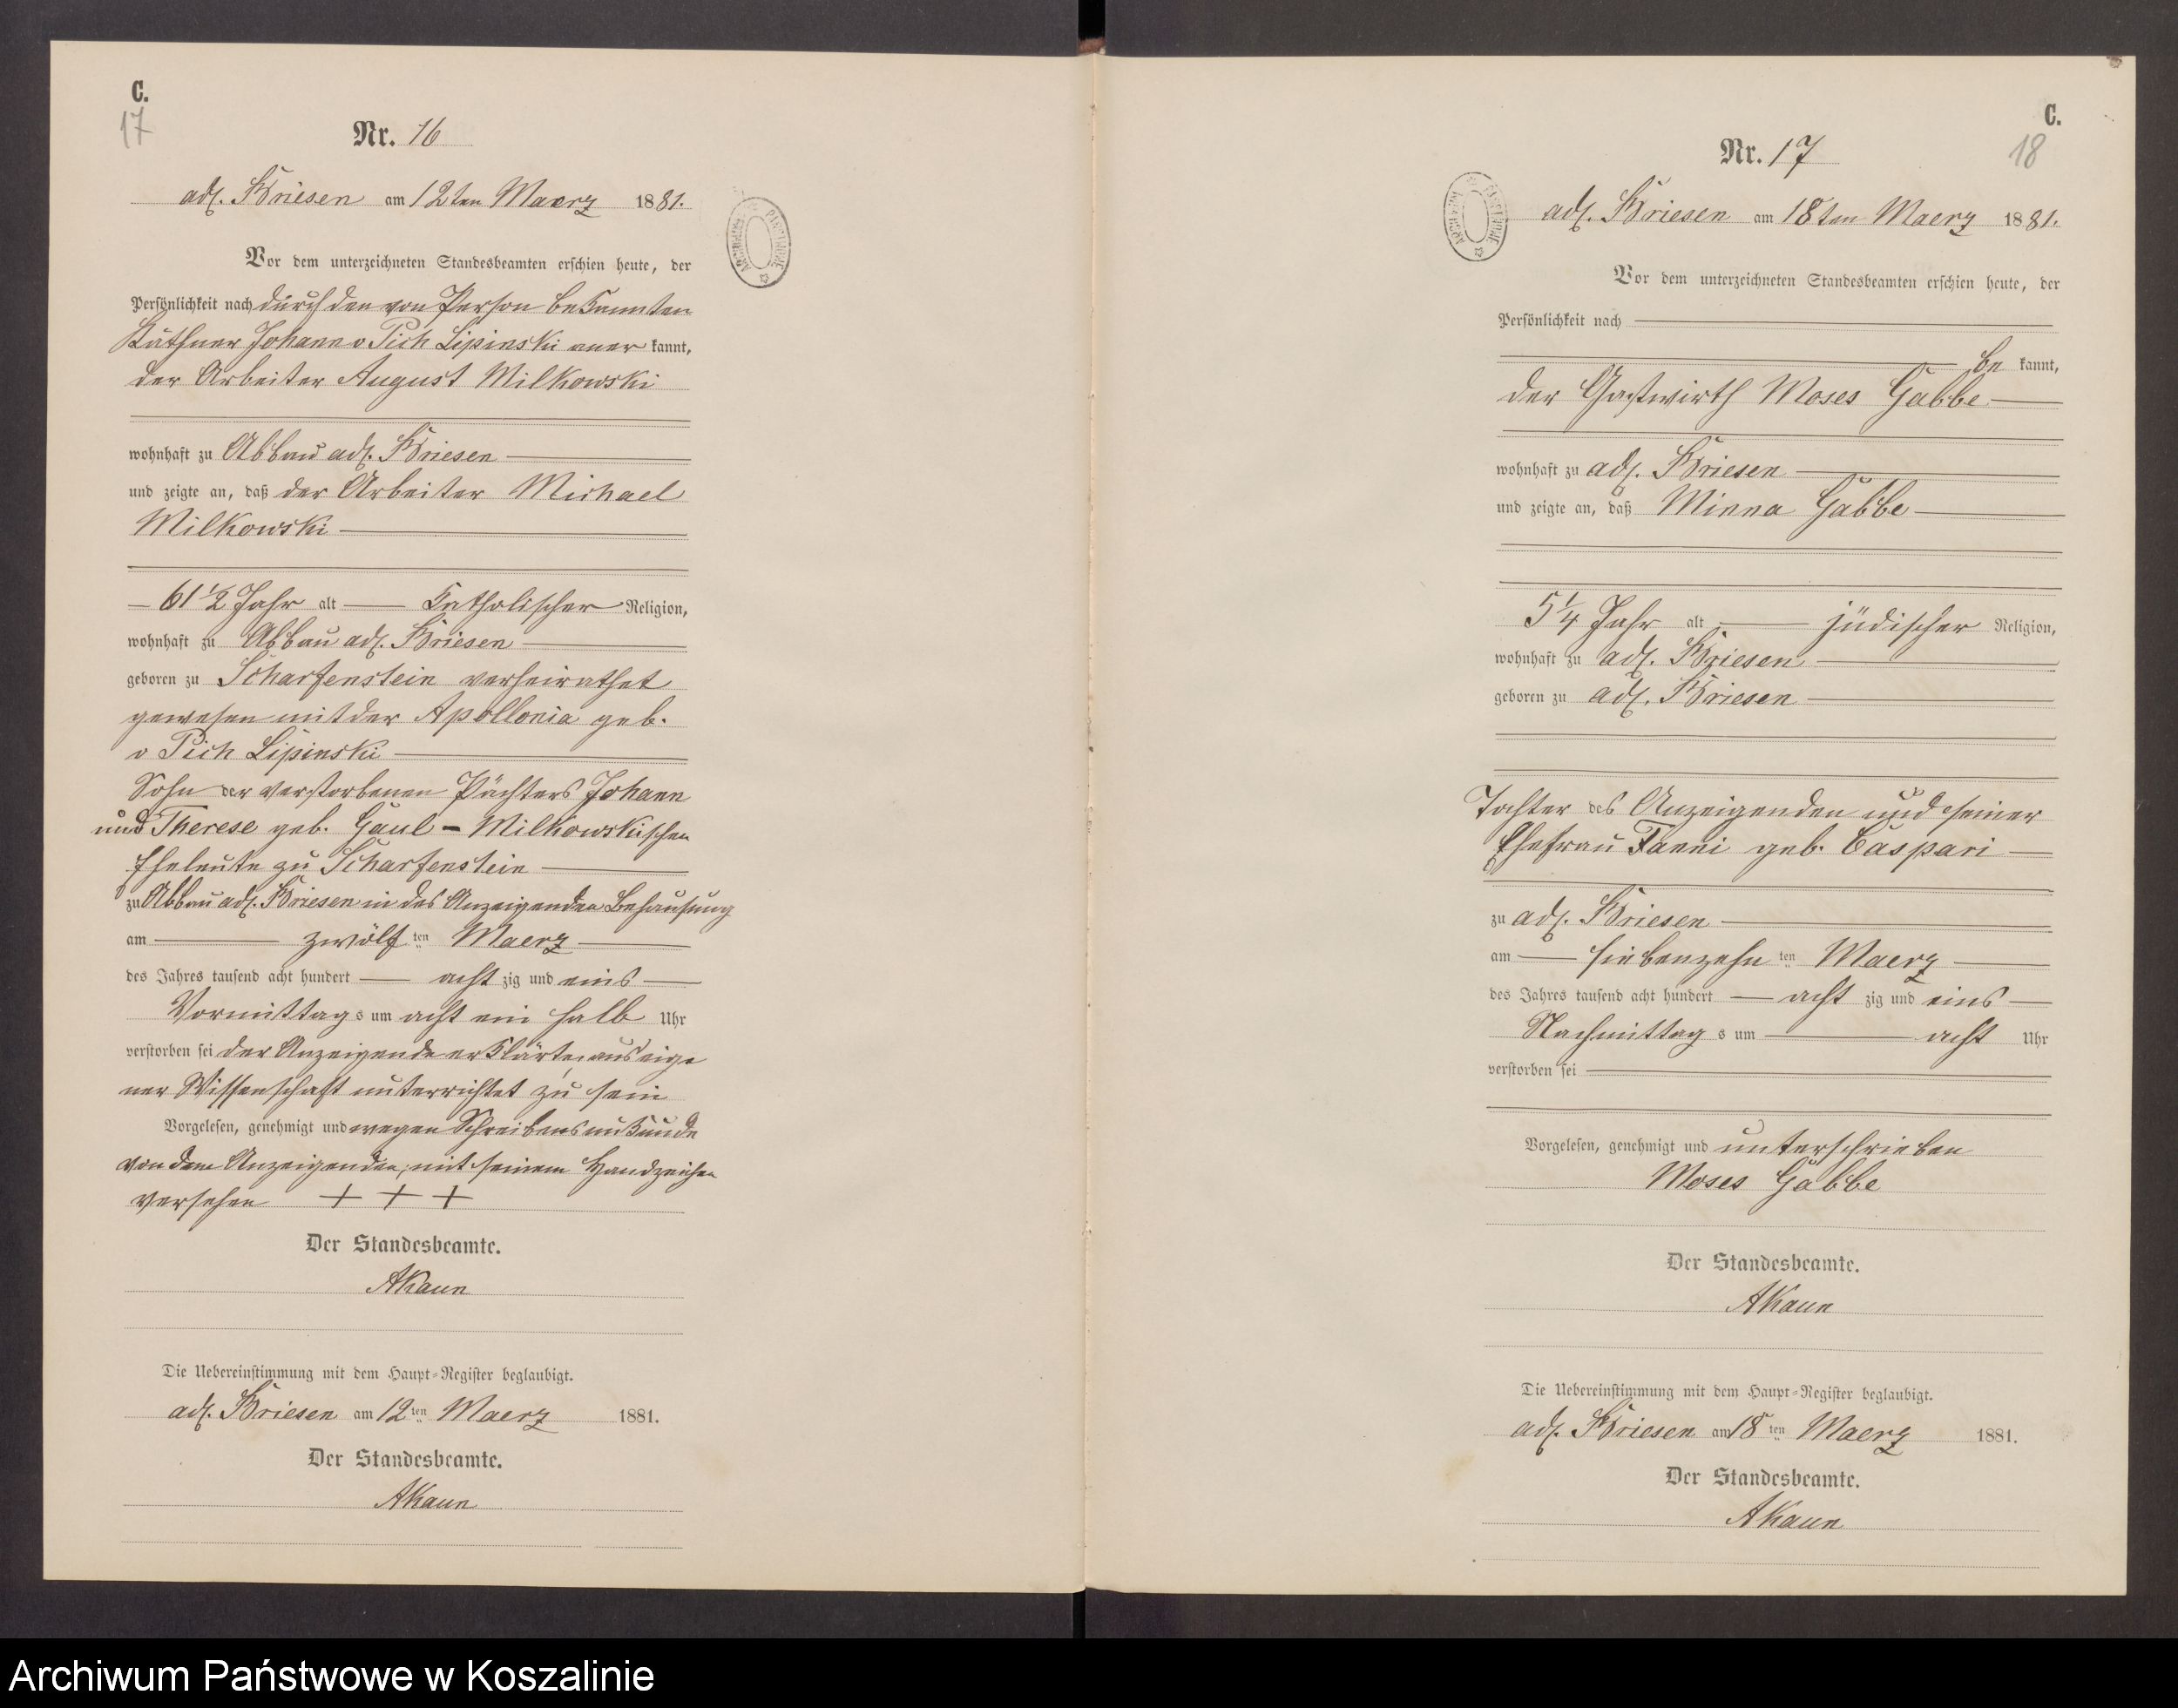 C.
17
Nr. 16
adl. Briesen am 12ten Maerz 1881.
Vor dem unterzeichneten Standesbeamten erschien heute, der
Persönlichkeit nach durch den von Person bekannten
Käthner Johann v Pich Lipinski aner kannt,
der Arbeiter August Milkowski
wohnhaft zu Abbau adl. Briesen
und zeigte an, daß der Arbeiter Michael
Milkowski
61 1/2 Jahr alt Katholischer Religion,
wohnhaft zu Abbau adl. Briesen
geboren zu Scharfenstein verheirathet
gewesen mit der Apollonia geb.
v Pich Lipinski
Sohn der verstorbenen Pächters Johann
und Therese geb. Gaul - Milkowskischen
Eheleute zu Scharfenstein
zu Abbau adl. Briesen in des Anzeigenden Behausung
am zwölf ten Maerz
des Jahres tausend acht hundert acht zig und eins
Vormittag s um acht ein halb Uhr
verstorben sei der Anzeigende erklärte, aus eige
ner Wissenschaft unterrichtet zu sein
Vorgelesen, genehmigt und wegen Schreibensunkunde
von dem Anzeigenden, mit seinem Handzeichen
versehen + + +
Der Standesbeamte.
AKaun
Die Uebereinstimmung mit dem Haupt-Register beglaubigt.
adl. Briesen am 12ten Maerz 1881.
Der Standesbeamte.
AKaun
C.
18
Nr. 17
ARCHIWUM PAŃSTWOWE
adl. Briesen am 18ten Maerz 1881.
Vor dem unterzeichneten Standesbeamten erschien heute, der
Persönlichkeit nach
be kannt,
der Gastwirth Moses Gabbe
wohnhaft zu adl. Briesen
und zeigte an, daß Minna Gabbe
5 1/4 Jahr alt jüdischer Religion,
wohnhaft zu adl. Briesen
geboren zu adl. Briesen
Tochter des Anzeigenden und seiner
Ehefrau Fanni geb. Caspari
zu adl. Briesen
am siebenzehn ten Maerz
des Jahres tausend acht hundert acht zig und eins
Nachmittag s um acht Uhr
verstorben sei
Vorgelesen, genehmigt und unterschrieben
Moses Gabbe
Der Standesbeamte.
AKaun
Die Uebereinstimmung mit dem Haupt-Register beglaubigt.
adl. Briesen am 18ten Maerz 1881.
Der Standesbeamte.
AKaun
Archiwum Państwowe w Koszalinie